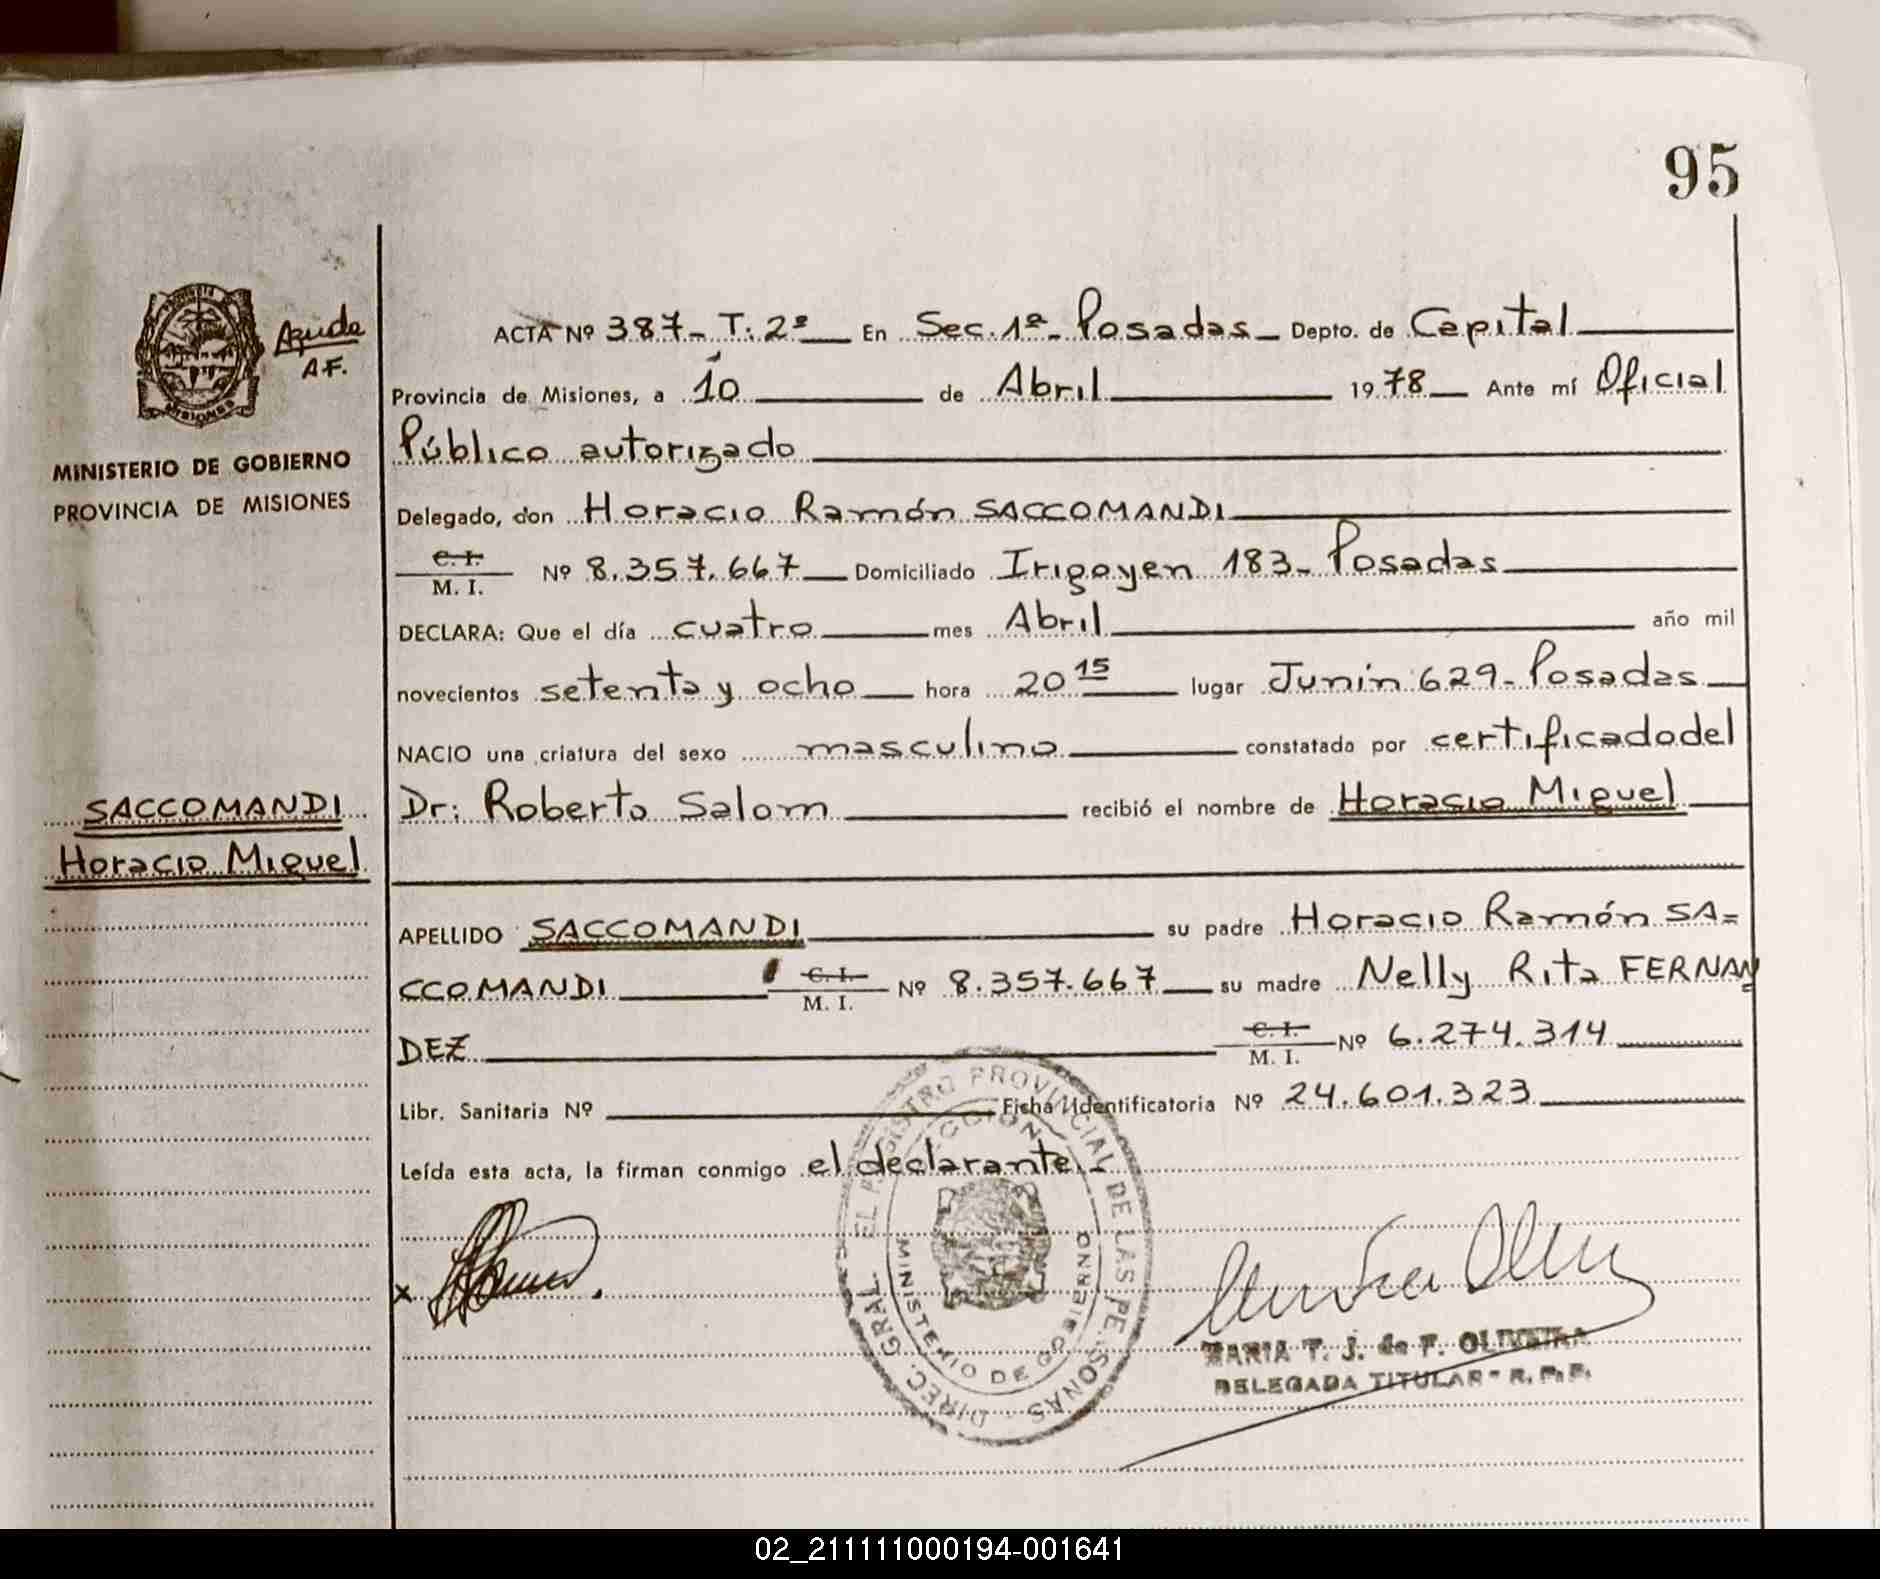 95
Ayuda
A.F.
MINISTERIO DE GOBIERNO
PROVINCIA DE MISIONES
SACCOMANDI
Horacio Miguel
ACTA Nº 387- T: 2º En Sec. 1ª- Posadas Depto. de Capital
Provincia de Misiones, a 10 de Abril 1978 Ante mí Oficial
Público autorizado
Delegado, don Horacio Ramón SACCOMANDI
C. I.
M. I. Nº 8.357.667 Domiciliado Irigoyen 183- Posadas
DECLARA: Que el día cuatro mes Abril año mil
novecientos setenta y ocho hora 20 15 lugar Junin 629- Posadas
NACIO una criatura del sexo masculino constatada por certificado del
Dr: Roberto Salom recibió el nombre de Horacio Miguel
APELLIDO SACCOMANDI su padre Horacio Ramón SA=
CCOMANDI C. I. M. I. Nº 8.357.667 su madre Nelly Rita FERNAN
DEZ C. I. M. I. Nº 6.274.314
Libr. Sanitaria Nº Ficha Identificatoria Nº 24.601.323
Leída esta acta, la firman conmigo el declarante.-
x
DIREC. GRAL. EL REGISTRO PROVINCIAL DE LAS PERSONAS
MINISTERIO DE GOBIERNO
MARIA T. J. de F. OLIVEIRA
DELEGADA TITULAR - R. P. P.
02_211111000194-001641